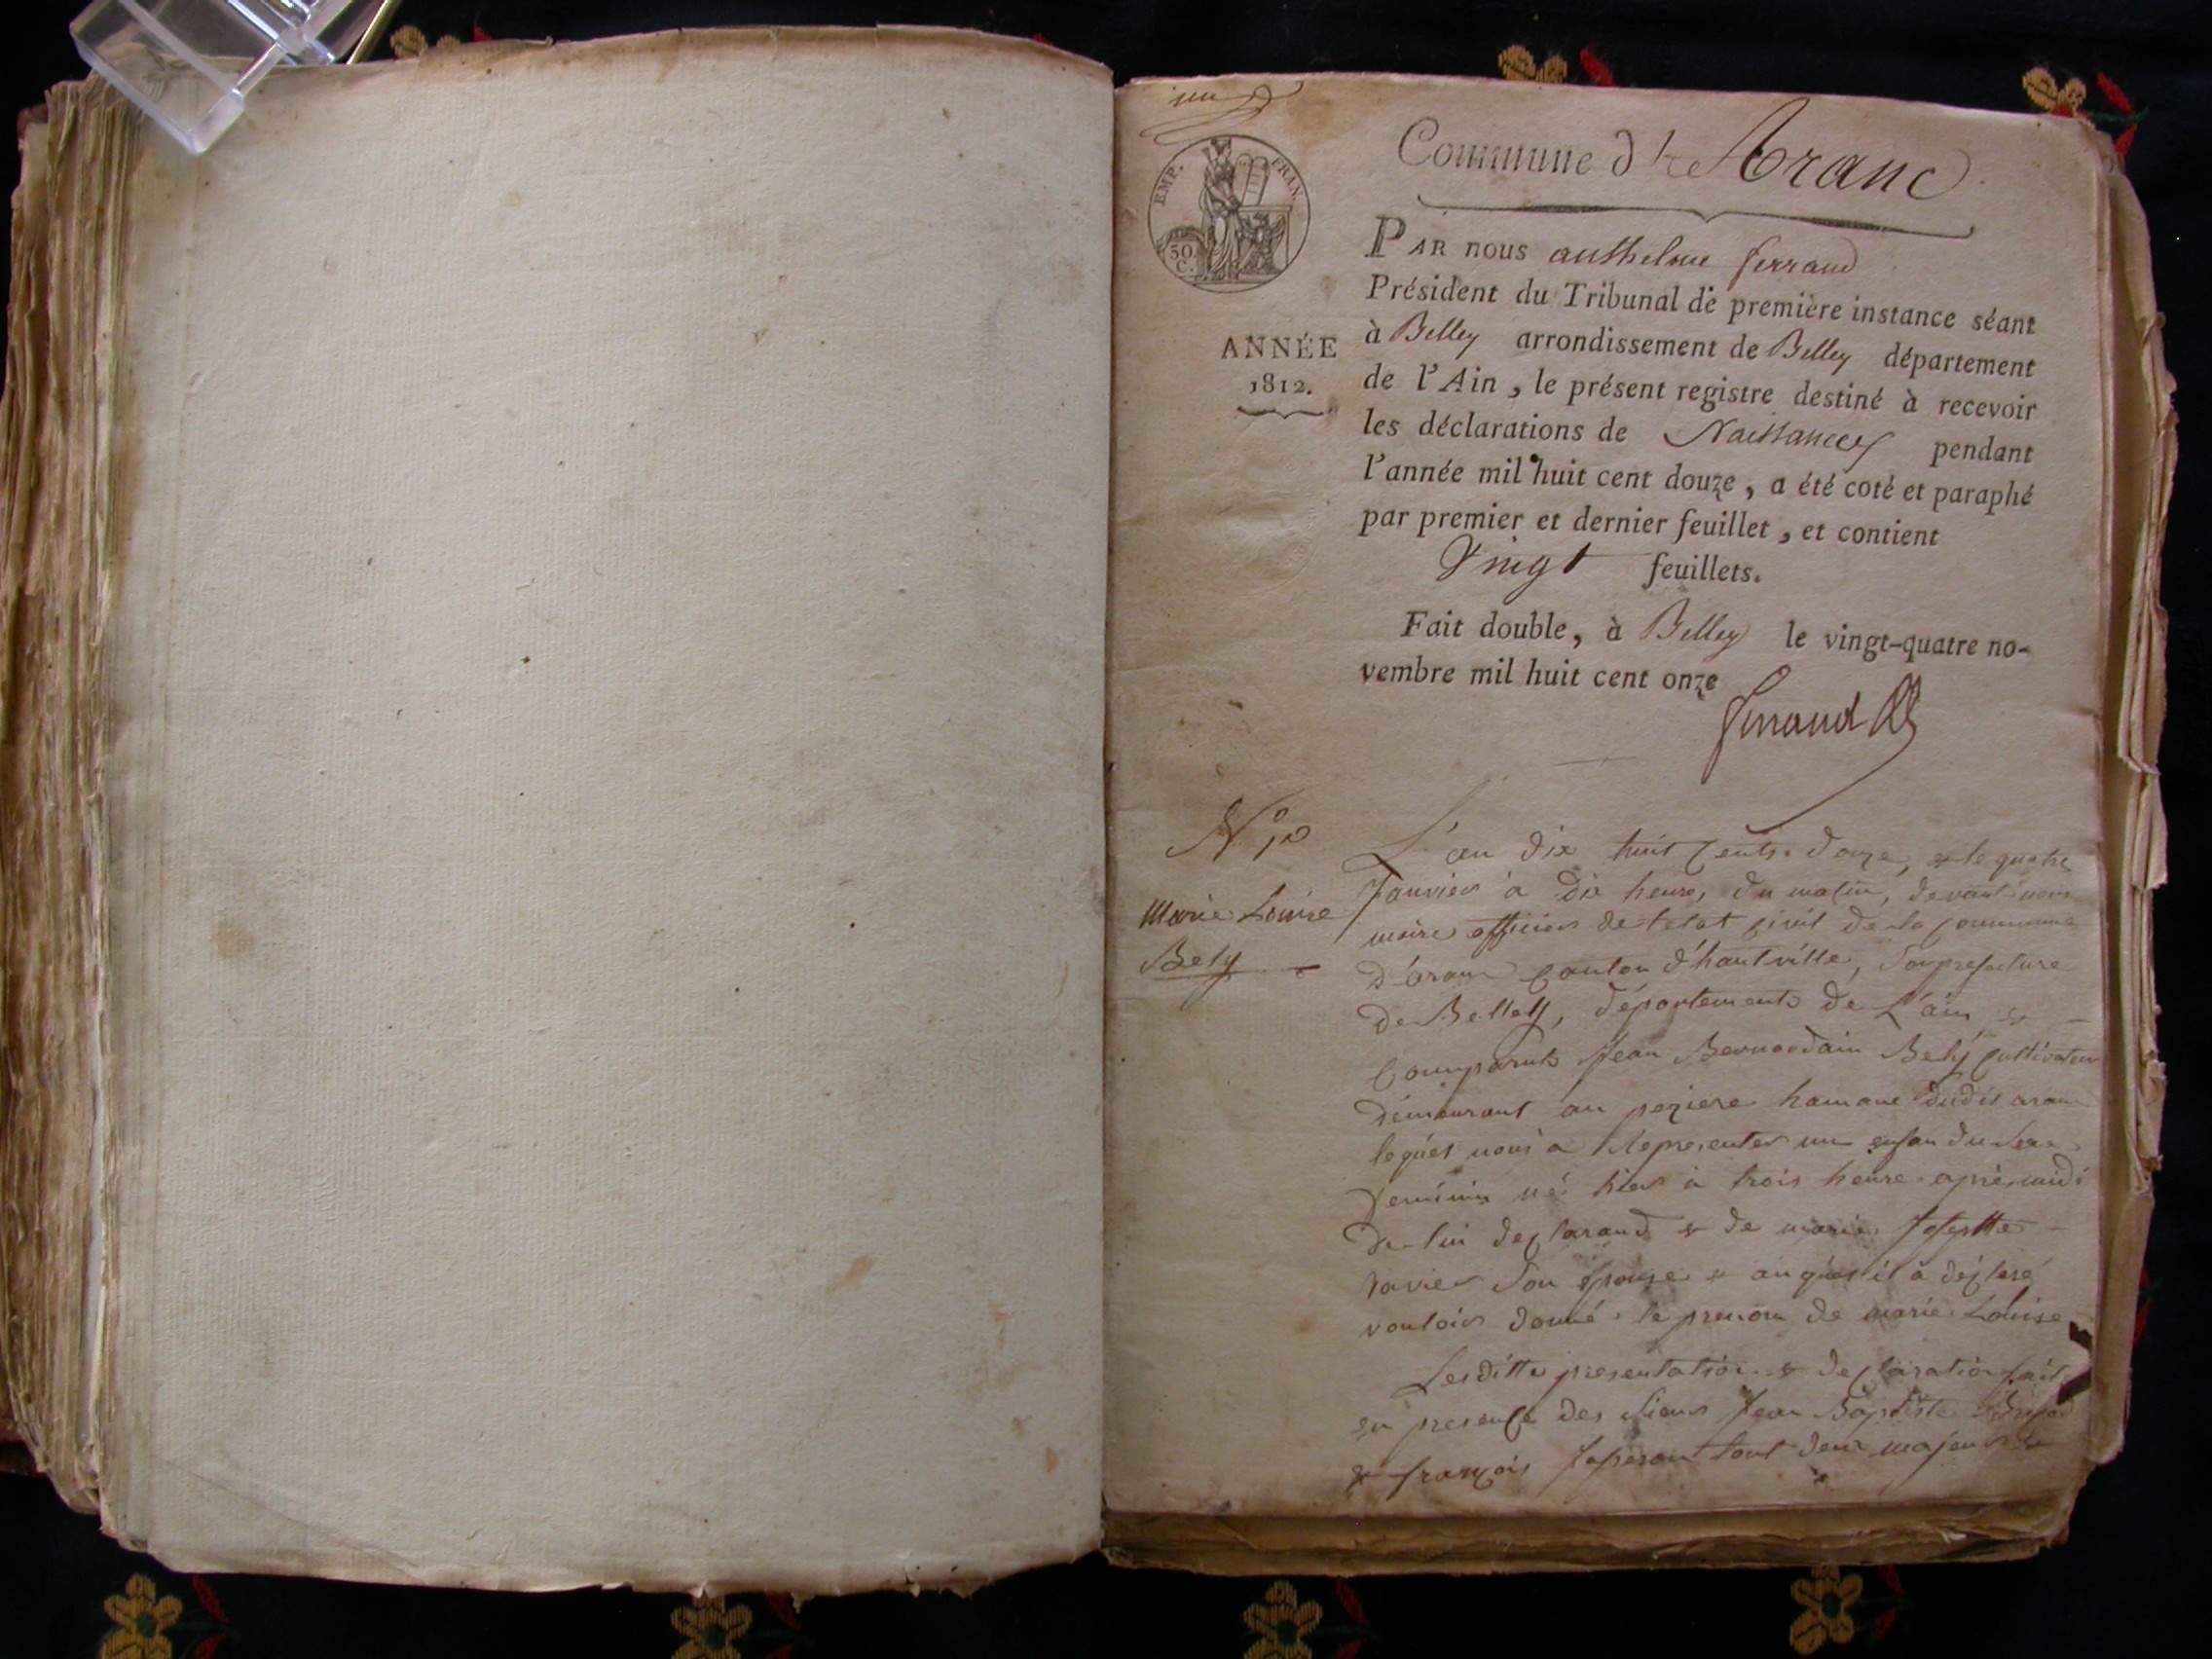 un
EMP. FRAN.
50 C.
Commune d'Aranc
ANNÉE
1812.
PAR nous anthelme ferrand
Président du Tribunal de première instance séant
à Belley arrondissement de Belley département
de l'Ain, le présent registre destiné à recevoir
les déclarations de Naissances pendant
l'année mil huit cent douze, a été coté et paraphé
par premier et dernier feuillet, et contient
Vingt feuillets.
Fait double, à Belley le vingt-quatre no-
vembre mil huit cent onze
ferrand
N° 1er
Marie Louise
Bely
L'an dix huit cents douze, & le quatre
Janvier à dix heures du matin, devant nous
maire officier de l'etat civil de la commune
d'aranc canton d'hautville, Souprefecture
de Belley, département de L'ain, &
Comparut Jean Bernardain Bely cultivateur
démeurant au peziere hamau dudit aranc
lequel nous a Representer un enfan du Sexe
feminin né hier à trois heure après midi
de lui declarand & de marie Josephte
Savier Son épouse & auquel il à déclaré
vouloir donné le prenom de marie Louise
Lesditte presentation & declaration fait
en presence des Sieurs Jean Baptiste
& françois tout deux majeurs